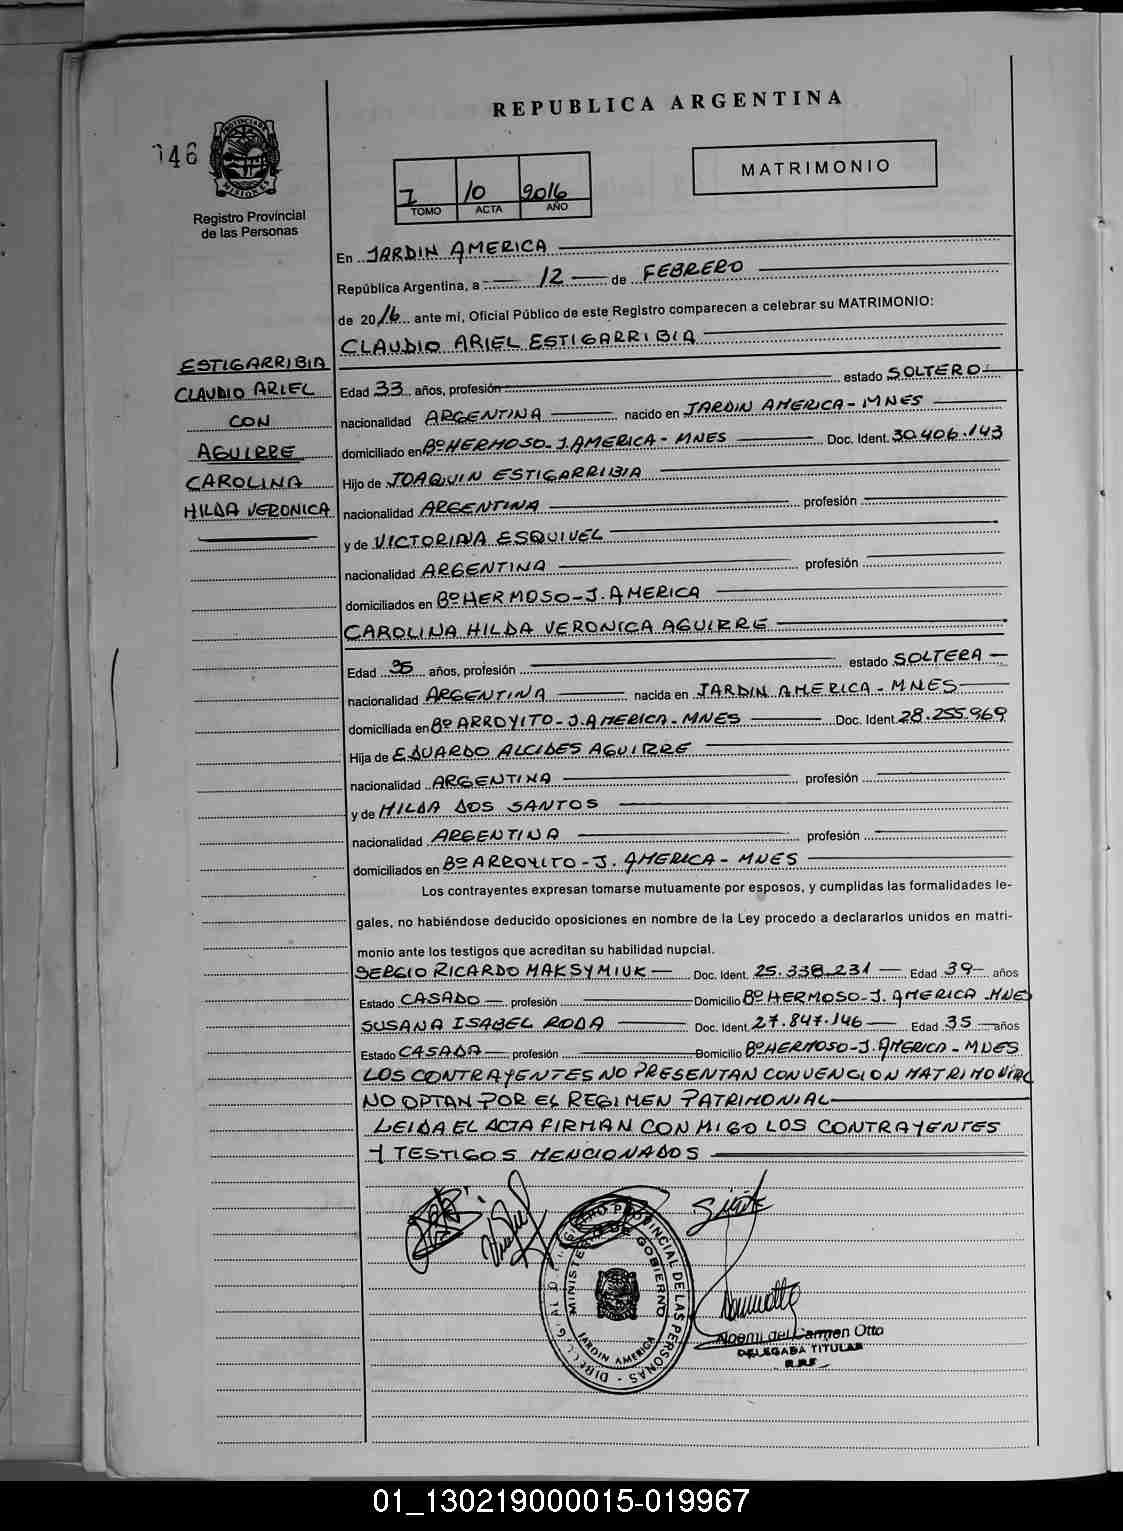 REPUBLICA ARGENTINA
146
PROVINCIA DE
MISIONES
Registro Provincial
de las Personas
10 2016
TOMO ACTA AÑO
MATRIMONIO
En JARDIN AMERICA
República Argentina, a 12 de FEBRERO
de 2016 ante mi, Oficial Público de este Registro comparecen a celebrar su MATRIMONIO:
CLAUDIO ARIEL ESTIGARRIBIA
ESTIGARRIBIA
CLAUDIO ARIEL
CON
AGUIRRE
CAROLINA
HILDA VERONICA
Edad 33 años, profesión estado SOLTERO
nacionalidad ARGENTINA nacido en JARDIN AMERICA - MNES
domiciliado en Bº HERMOSO - J. AMERICA - MNES Doc. Ident. 30.406.143
Hijo de JOAQUIN ESTIGARRIBIA
nacionalidad ARGENTINA profesión
y de VICTORIANA ESQUIVEL
nacionalidad ARGENTINA profesión
domiciliados en Bº HERMOSO - J. AMERICA
CAROLINA HILDA VERONICA AGUIRRE
Edad 35 años, profesión estado SOLTERA
nacionalidad ARGENTINA nacida en JARDIN AMERICA - MNES
domiciliada en Bº ARROYITO - J. AMERICA - MNES Doc. Ident 28.255.969
Hija de EDUARDO ALCIDES AGUIRRE
nacionalidad ARGENTINA profesión
y de HILDA DOS SANTOS
nacionalidad ARGENTINA profesión
domiciliados en Bº ARROYITO - J. AMERICA - MNES
Los contrayentes expresan tomarse mutuamente por esposos, y cumplidas las formalidades le-
gales, no habiéndose deducido oposiciones en nombre de la Ley procedo a declararlos unidos en matri-
monio ante los testigos que acreditan su habilidad nupcial.
SERGIO RICARDO MAKSYMIUK Doc. Ident. 25.338.231 Edad 39 años
Estado CASADO profesión Domicilio Bº HERMOSO - J. AMERICA - MNES
SUSANA ISABEL RODA Doc. Ident. 27.847.146 Edad 35 años
Estado CASADA profesión Domicilio Bº HERMOSO - J. AMERICA - MNES
LOS CONTRAYENTES NO PRESENTAN CONVENCION MATRIMONIAL
NO OPTAN POR EL REGIMEN PATRIMONIAL
LEIDA EL ACTA FIRMAN CON MIGO LOS CONTRAYENTES
Y TESTIGOS MENCIONADOS
PROVINCIAL DE LAS PERSONAS
MINISTERIO DE GOBIERNO
JARDIN AMERICA
Noemi del Carmen Otto
DELEGADA TITULAR
01_130219000015-019967